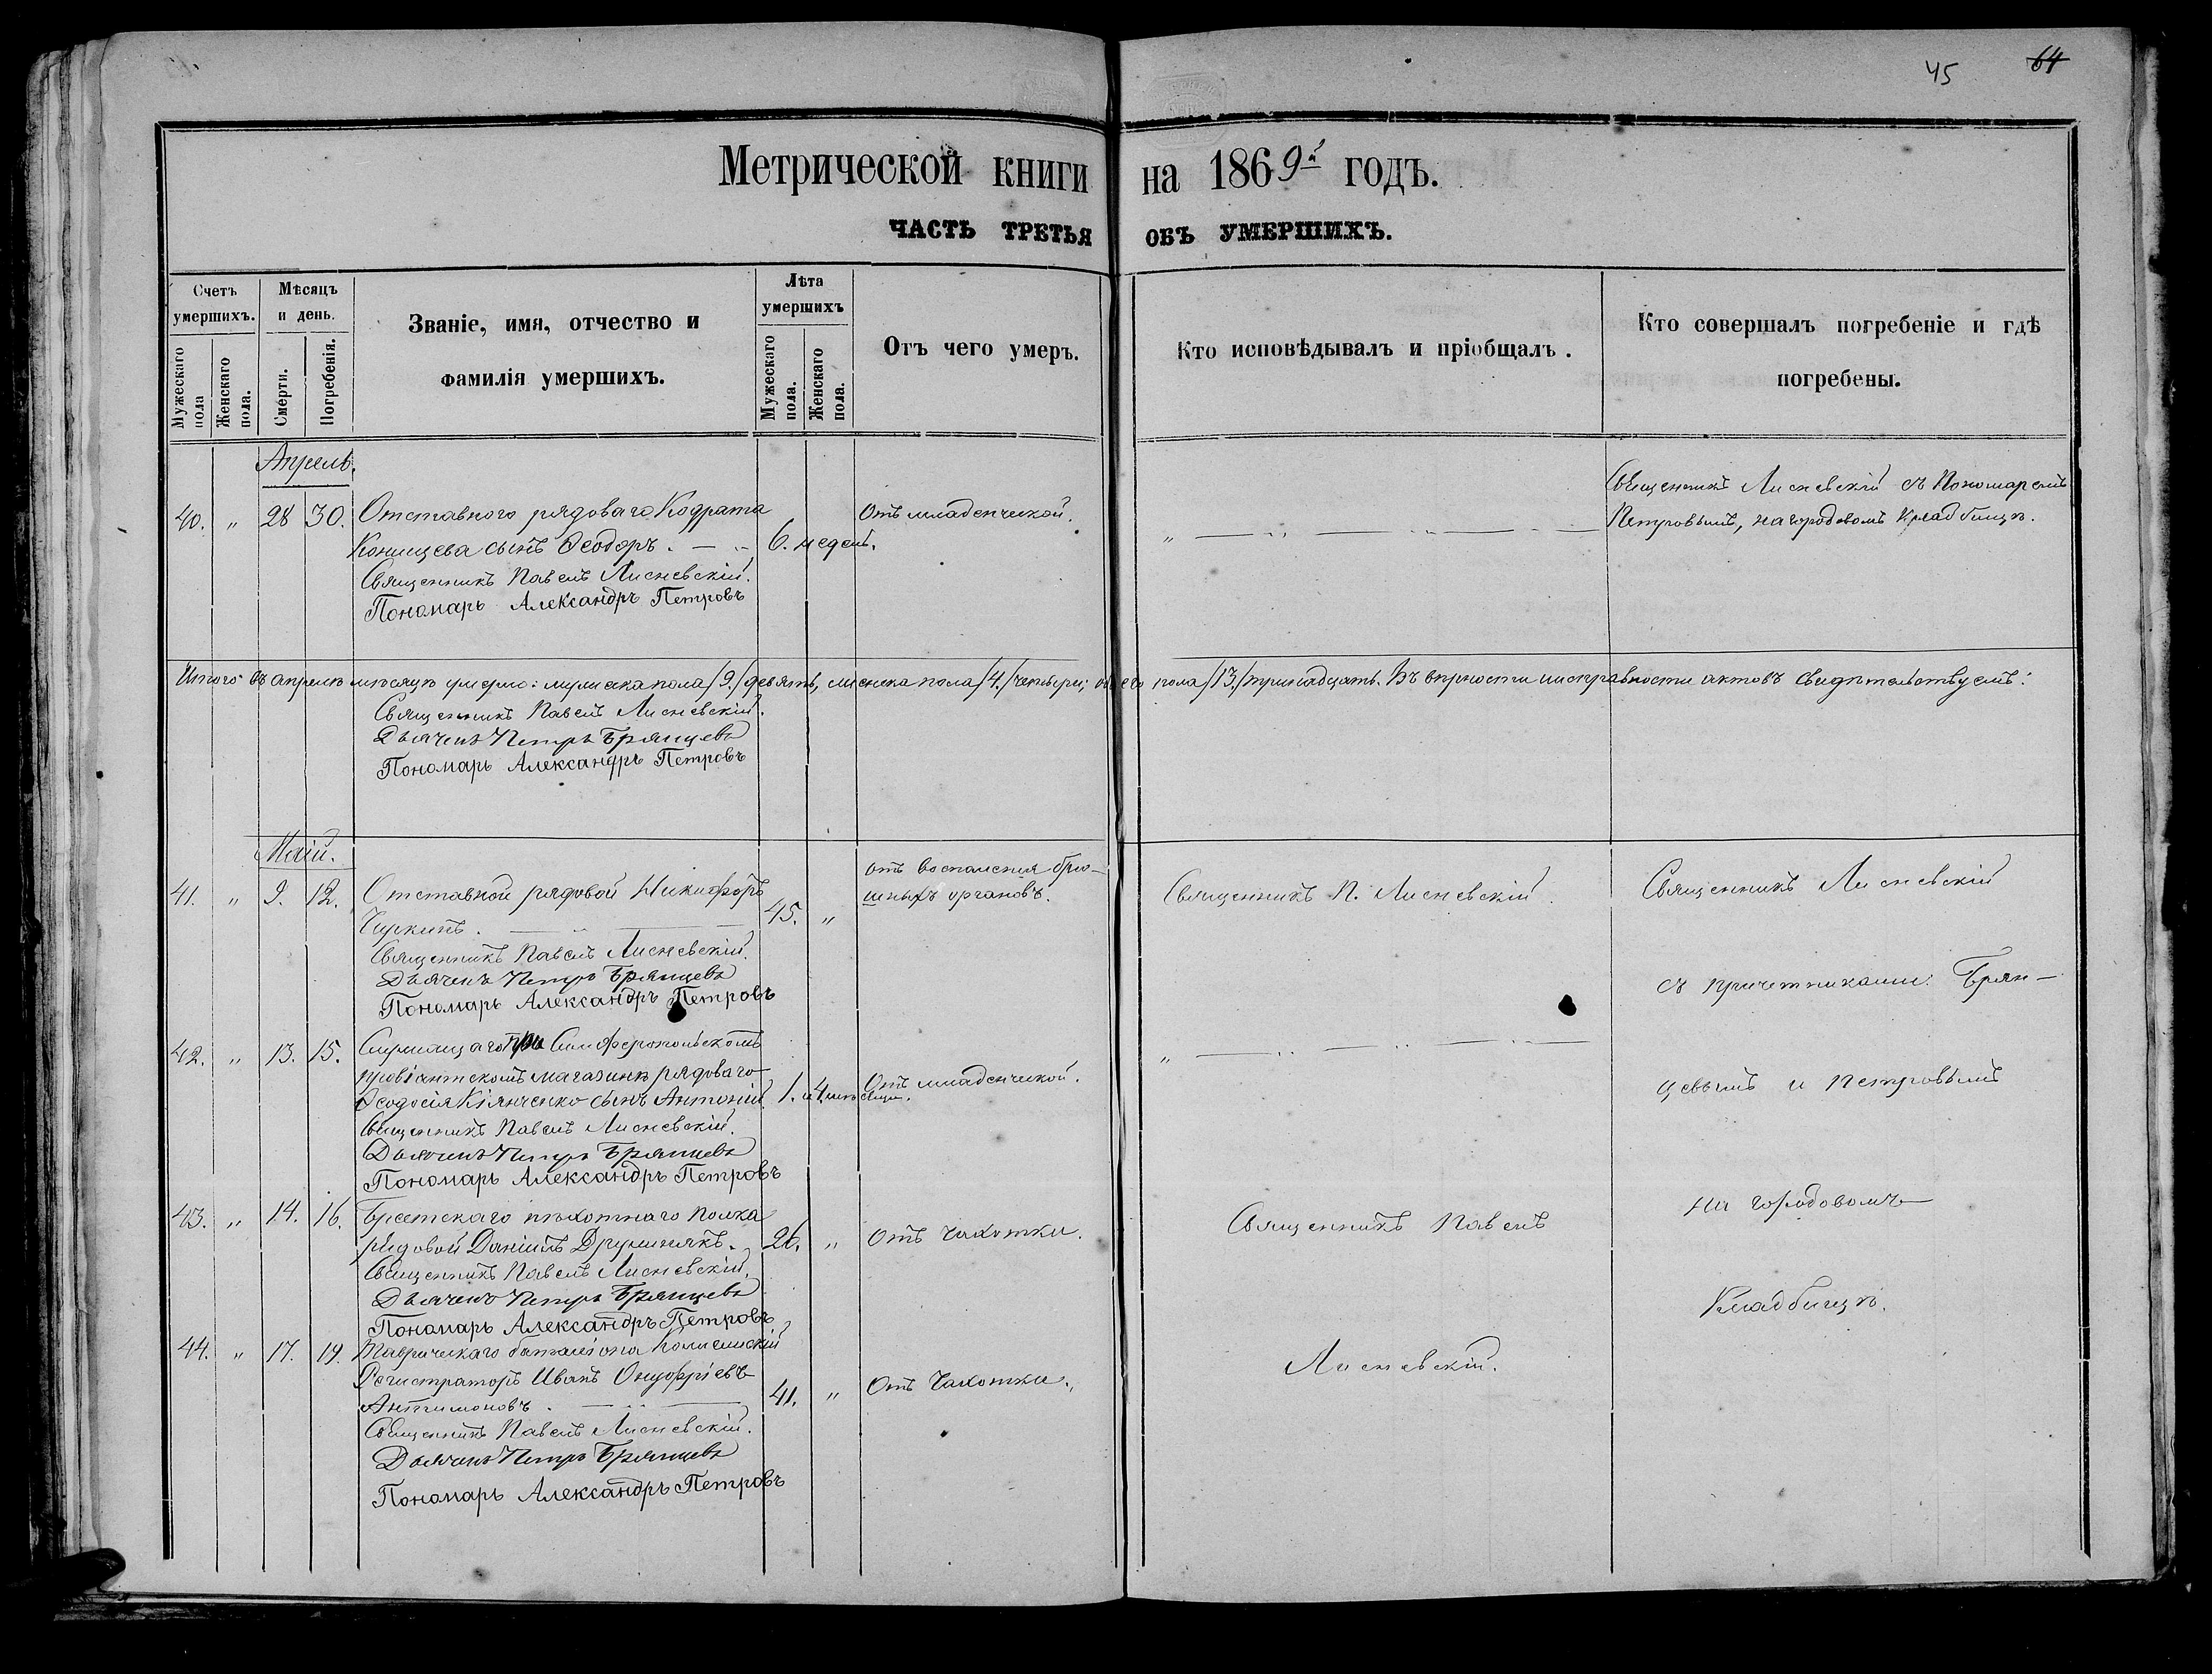 45 64
Метрической книги на 1869й годъ.
ЧАСТЬ ТРЕТЬЯ ОБЪ УМЕРШИХЪ.
Счетъ умершихъ.
Мужескаго пола
Женскаго пола.
Мѣсяцъ и день.
Смерти.
Погребенія.
Званіе, имя, отчество и
фамилія умершихъ.
Лѣта умершихъ
Мужескаго пола.
Женскаго пола.
Отъ чего умеръ.
Кто исповѣдывалъ и пріобщалъ.
Кто совершалъ погребеніе и гдѣ
погребены.
Апрель.
40. „ 28 30. Отставного рядоваго Кодрата
Конищева сынъ Ѳеодоръ. 6. недель.
Отъ младенческой.
Священникъ Лисневскій съ Пономаремъ
Петровымъ, на городовомъ кладбищѣ.
Священникъ Павелъ Лисневскій.
Пономарь Александръ Петровъ
Итого въ апрелѣ мѣсяцѣ умерло: мужеска пола /9./ девять, женска пола /4./ четыре; обоего пола /13./ тринадцать. Въ верности и исправности актовъ свидѣтельствуемъ:
Священникъ Павелъ Лисневскій.
Дьячекъ Петръ Брянцевъ
Пономарь Александръ Петровъ
Маій.
41. „ 9. 12. Отставной рядовой Никифоръ
Чуркинъ. 45. „
отъ воспаления брю-
шныхъ органовъ.
Священникъ П. Лисневскій.
Священникъ Лисневскій
Священникъ Павелъ Лисневскій.
Дьячекъ Петръ Брянцевъ
Пономарь Александръ Петровъ
съ причетниками: Брян-
42. „ 13. 15. Служащаго при Симферопольскомъ
провіантскомъ магазинѣ рядоваго
Ѳеодосія Кіянченко сынъ Антоній. 1. и 4. месяца.
Отъ младенческой.
цевымъ и Петровымъ
Священникъ Павелъ Лисневскій.
Дьячекъ Петръ Брянцевъ
Пономарь Александръ Петровъ
43. „ 14. 16. Брестскаго пѣхотнаго полка
рядовой Даніилъ Друшлякъ. 26. „
Отъ чахотки.
Священникъ Павелъ
на городовомъ
Священникъ Павелъ Лисневскій.
Дьячекъ Петръ Брянцевъ
Пономарь Александръ Петровъ
Кладбищѣ.
44. „ 17. 19. Таврическаго баталіона Колежскій
Регистраторъ Иванъ Онуфріевъ
Антимоновъ. 41. „
Отъ Чахотки.
Лисневскій.
Священникъ Павелъ Лисневскій.
Дьячекъ Петръ Брянцевъ
Пономарь Александръ Петровъ